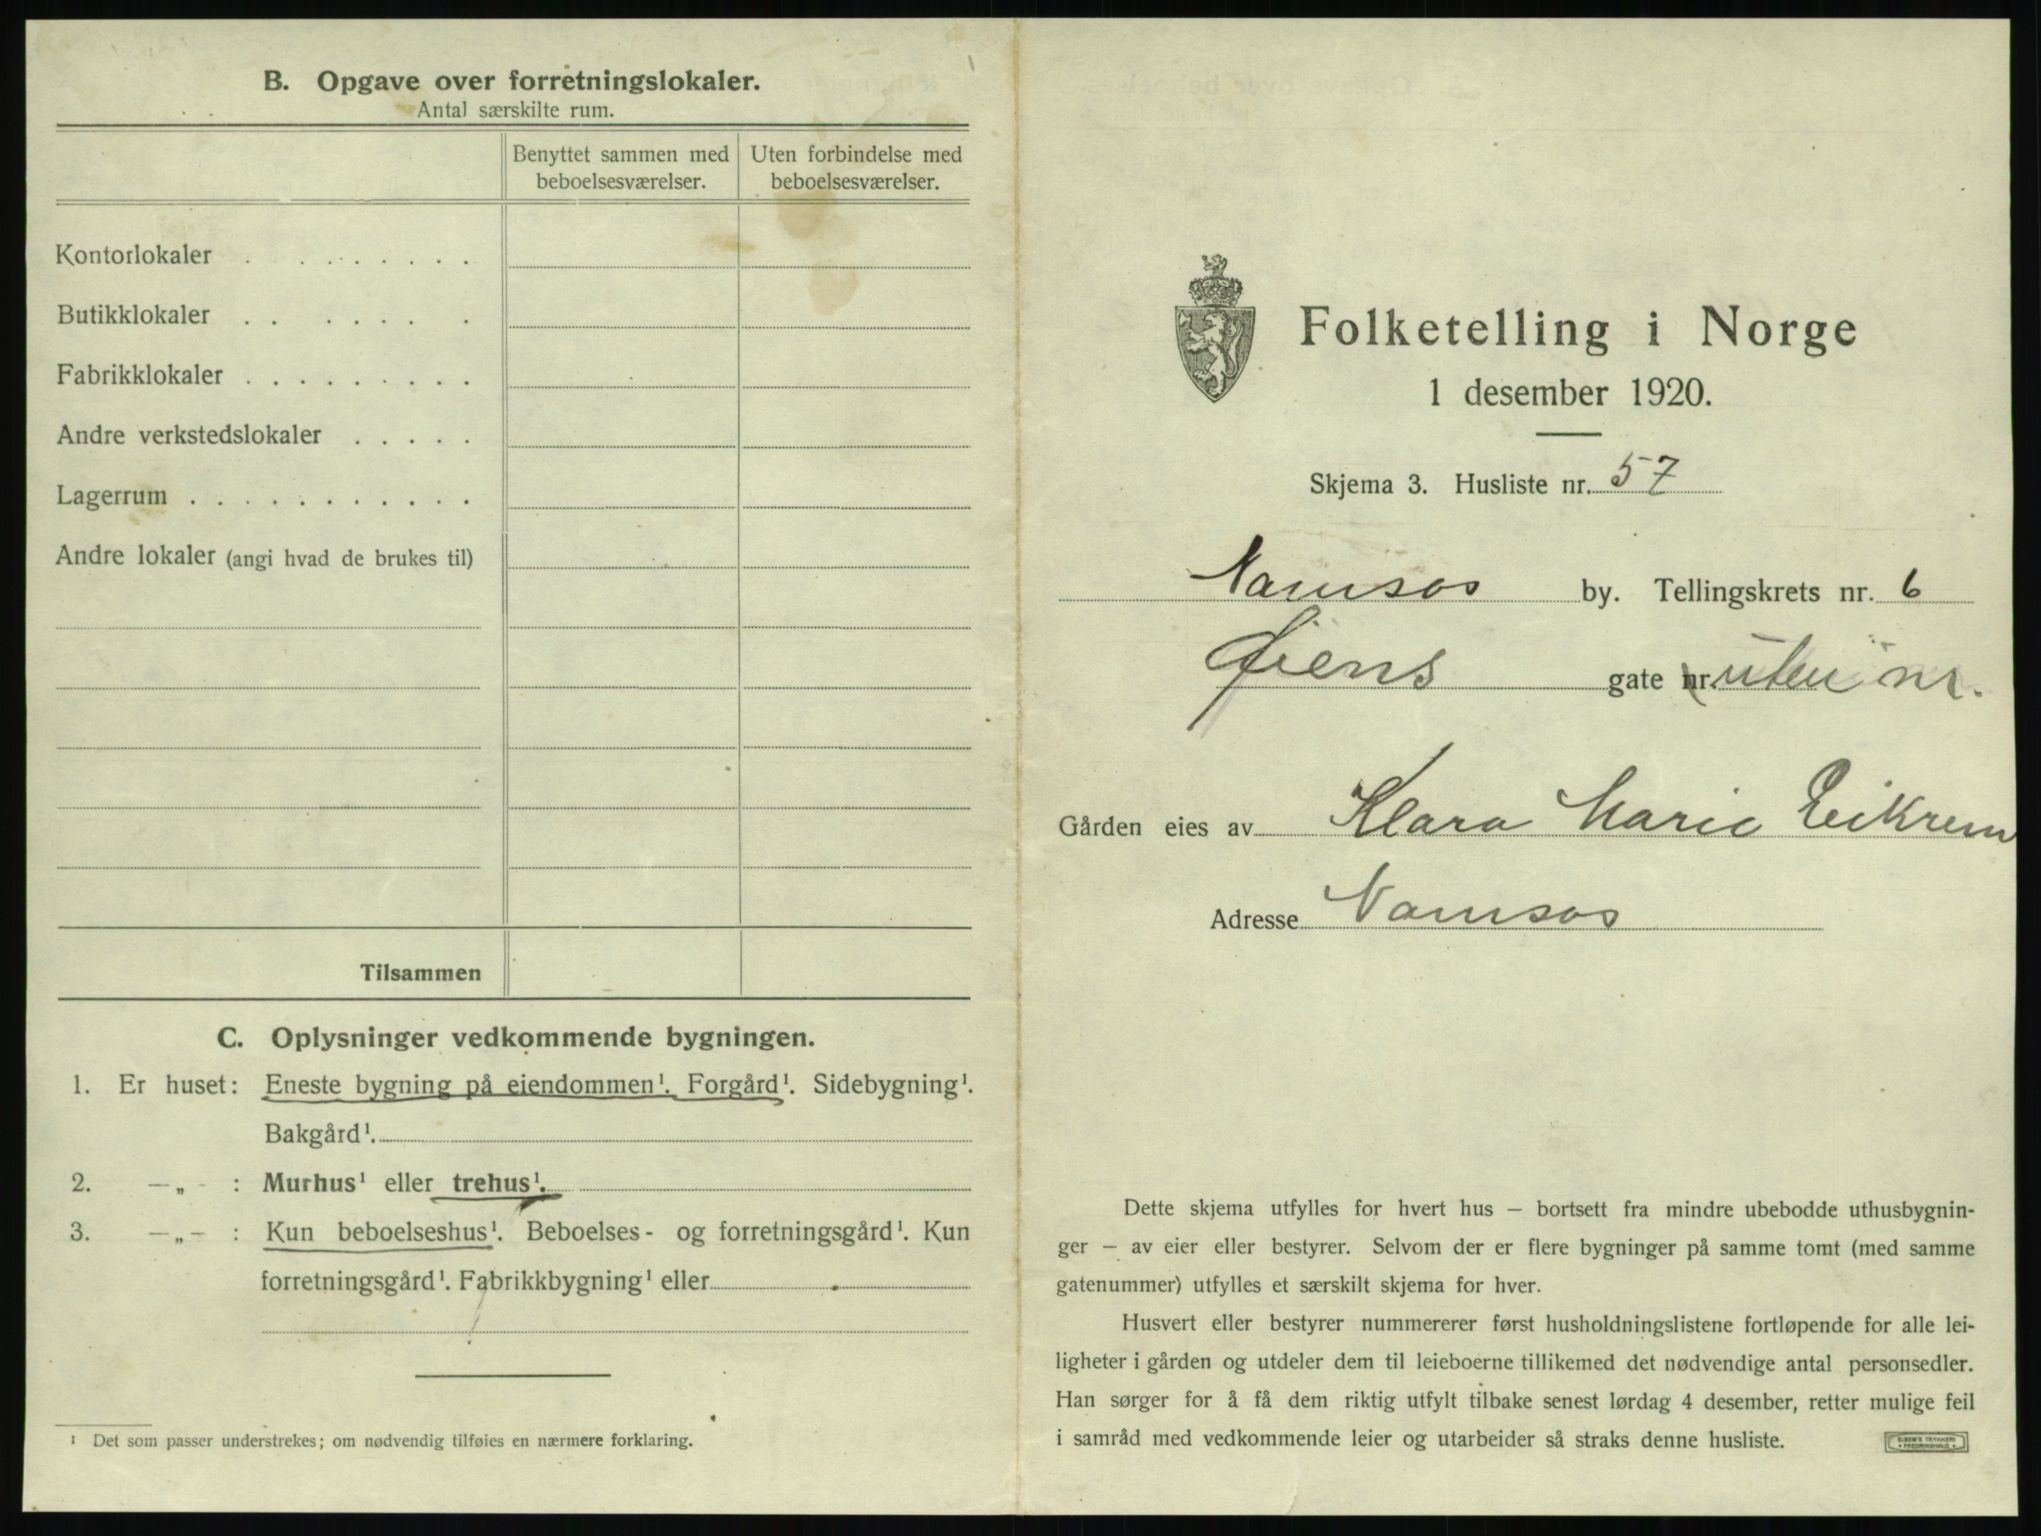 B. Opgave over forretningslokaler.
Antal særskilte rum.
Benyttet sammen med beboelsesværelser.
Uten forbindelse med beboelsesværelser.
Kontorlokaler . . . . . . . . .
Butikklokaler . . . . . . .
Fabrikklokaler . . . . . . . . .
Andre verkstedslokaler . . . . .
Lagerrum . . . . . . . . . . .
Andre lokaler (angi hvad de brukes til)
Tilsammen
C. Oplysninger vedkommende bygningen.
1. Er huset: Eneste bygning på eiendommen¹. Forgård¹. Sidebygning¹.
Bakgård¹.
2. —„- : Murhus¹ eller trehus¹.
3. —„— : Kun beboelseshus¹. Beboelses- og forretningsgård¹. Kun
forretningsgård¹. Fabrikkbygning¹ eller
¹ Det som passer understrekes; om nødvendig tilføies en nærmere forklaring.
Folketelling i Norge
1 desember 1920.
Skjema 3. Husliste nr. 57
Namsos by. Tellingskrets nr. 6
Øiens gate nr. uten nr.
Gården eies av Klara Marie Eikrem
Adresse Namsos
Dette skjema utfylles for hvert hus — bortsett fra mindre ubebodde uthusbygnin-
ger — av eier eller bestyrer. Selvom der er flere bygninger på samme tomt (med samme
gatenummer) utfylles et særskilt skjema for hver.
Husvert eller bestyrer nummererer først husholdningslistene fortløpende for alle lei-
ligheter i gården og utdeler dem til leieboerne tillikemed det nødvendige antal personsedler.
Han sørger for å få dem riktig utfylt tilbake senest lørdag 4 desember, retter mulige feil
i samråd med vedkommende leier og utarbeider så straks denne husliste.